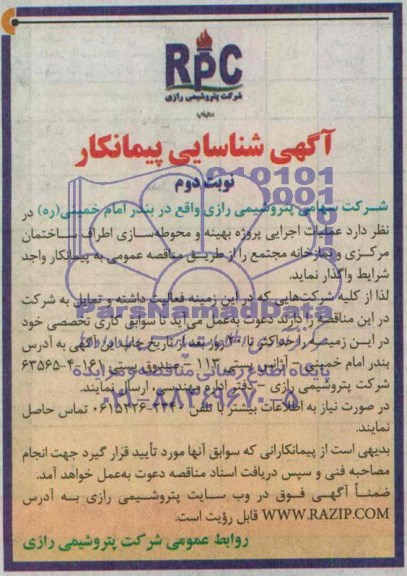 RPC
شرکت پتروشیمی رازی
آگهی شناسایی پیمانکار
نوبت دوم
شرکت سهامی پتروشیمی رازی واقع در بندر امام خمینی(ره) در
نظر دارد عملیات اجرایی پروژه بهینه و محوطه‌سازی اطراف ساختمان
مرکزی و نمازخانه مجتمع را از طریق مناقصه عمومی به پیمانکار واجد
شرایط واگذار نماید.
لذا از کلیه شرکت‌هایی که در این زمینه فعالیت داشته و تمایل به شرکت
در این مناقصه را دارند دعوت به‌عمل می‌آید تا سوابق کاری تخصصی خود
در این زمینه را حداکثر تا روز بعد از تاریخ چاپ این آگهی به آدرس
بندر امام خمینی – صندوق پستی ۱۶۱-۶۳۵۶۵
شرکت پتروشیمی رازی – دفتر اداره مهندسی، ارسال نمایند.
در صورت نیاز به اطلاعات بیشتر با تلفن تماس حاصل
نمایند.
بدیهی است از پیمانکارانی که سوابق آنها مورد تأیید قرار گیرد جهت انجام
مصاحبه فنی و سپس دریافت اسناد مناقصه دعوت به‌عمل خواهد آمد.
ضمناً آگهی فوق در وب سایت پتروشیمی رازی به آدرس
WWW.RAZIP.COM قابل رؤیت است.
روابط عمومی شرکت پتروشیمی رازی
ParsNamadData
پایگاه اطلاع رسانی مناقصه و مزایده
۰۲۱-۸۸۳۴۹۶۷۰-۵